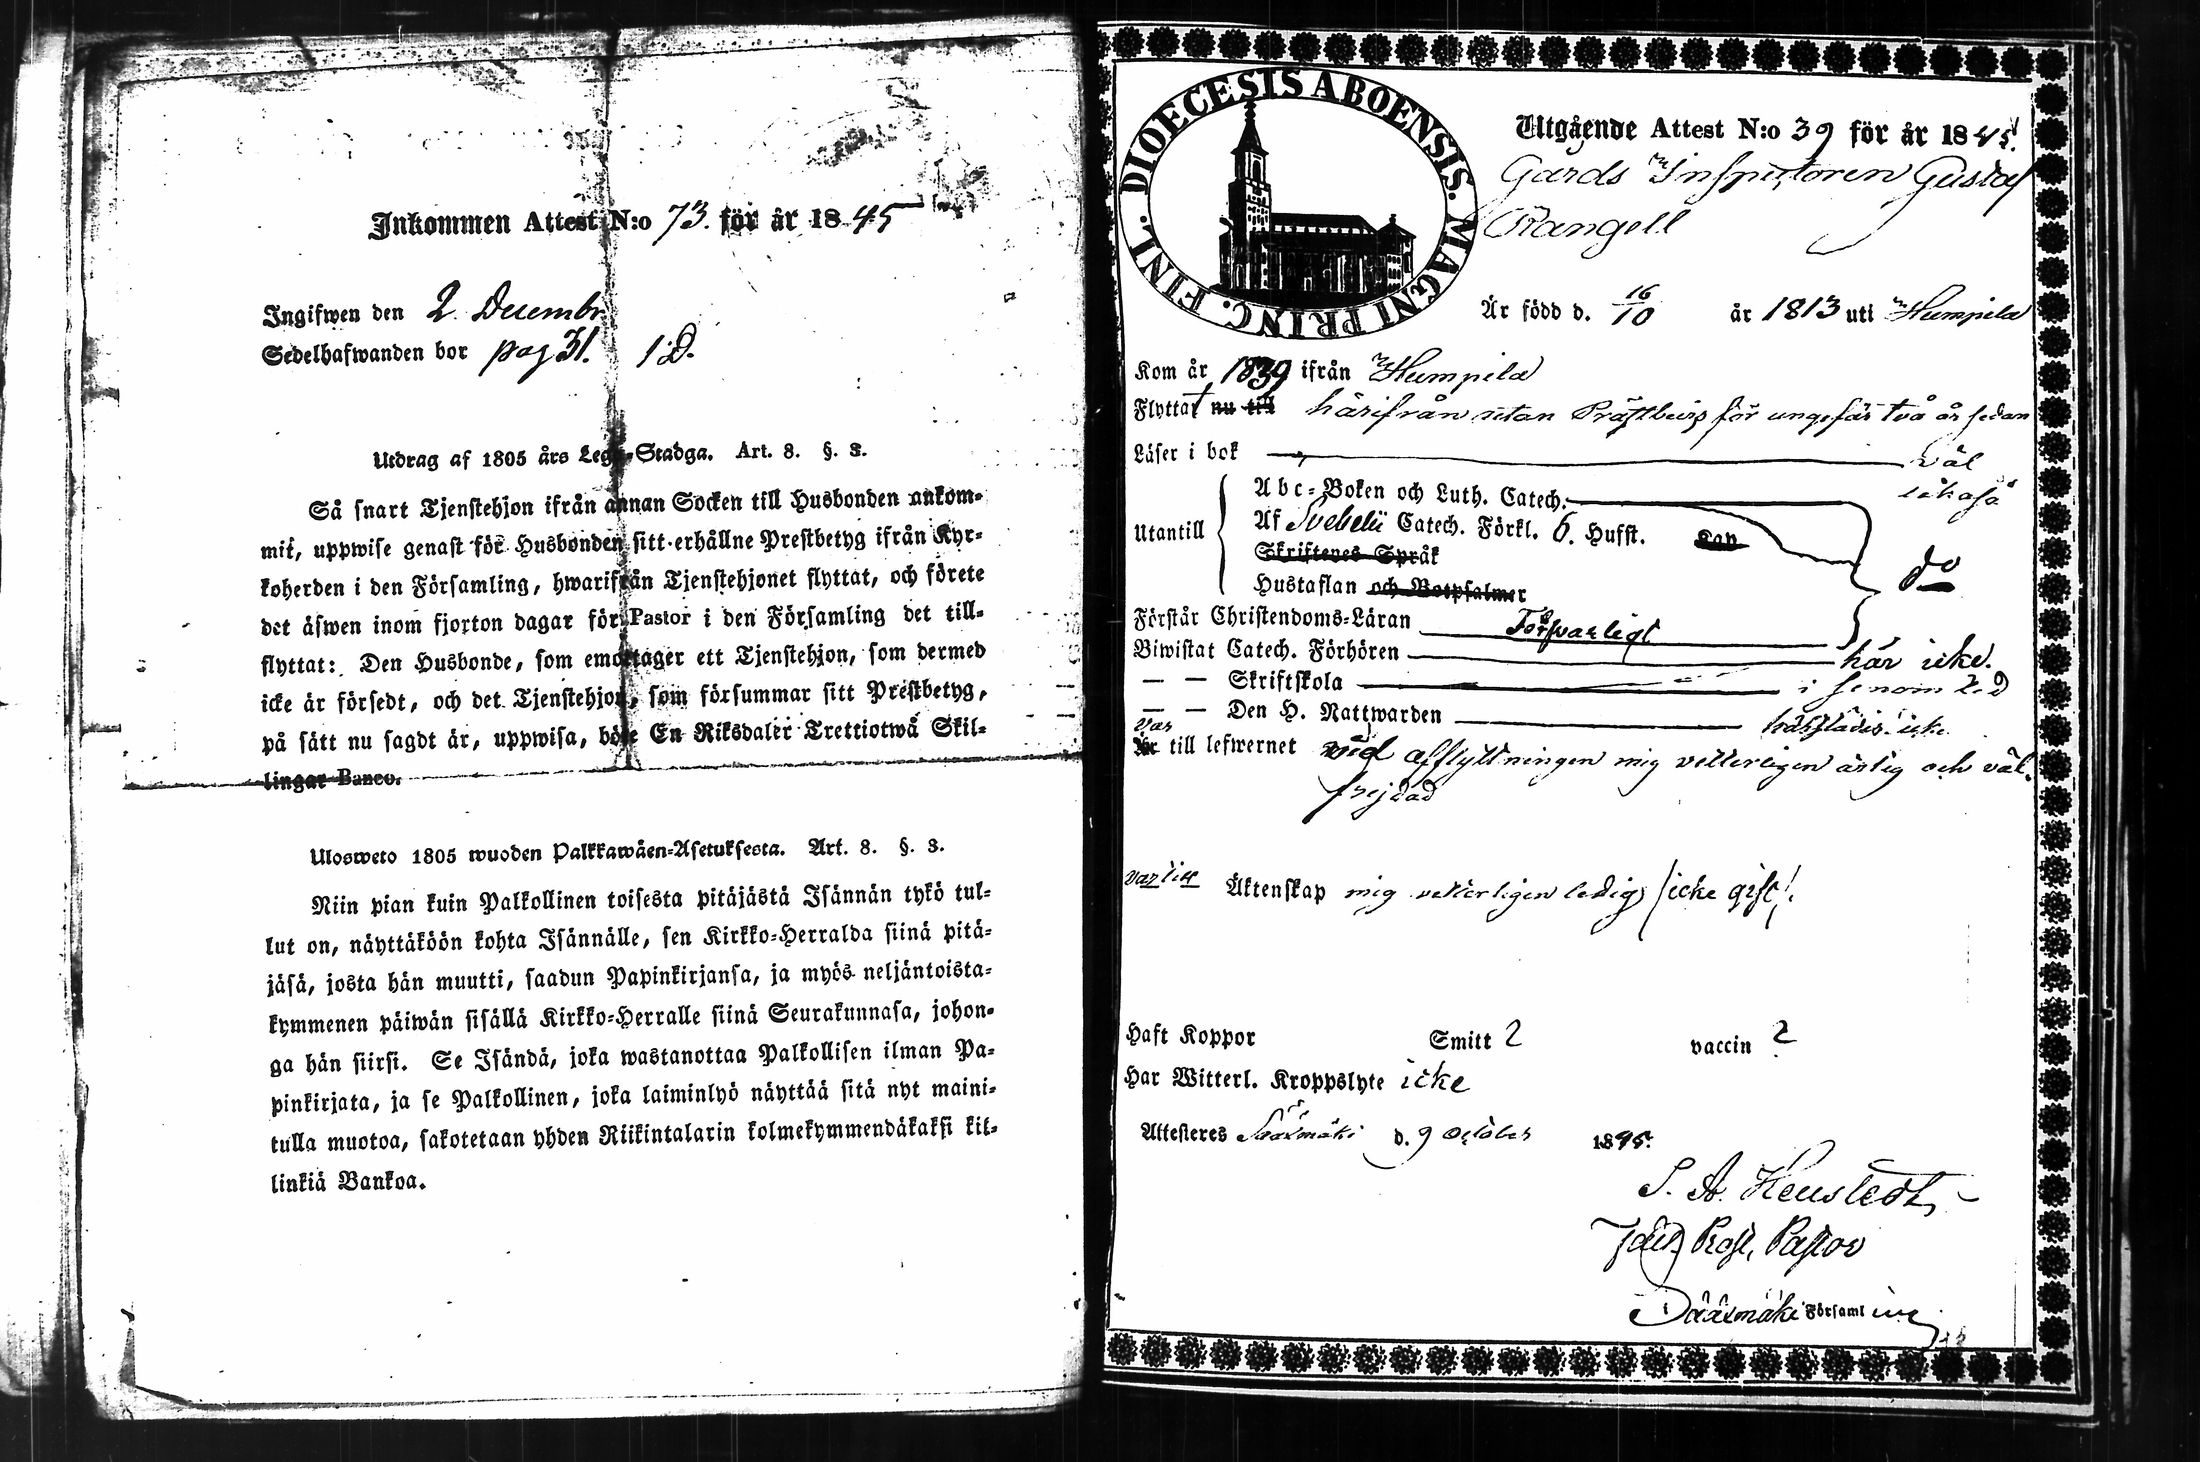 Inkommen Attest N:o 73. för år 1845
Ingifwen den 2 Decembr
Sedelhafwanden bor pag 31. 1 D.
Utdrag af 1805 års Lego-Stadga. Art. 8. §. 3.
Så snart Tjenstehjon ifrån annan Socken till Husbonden ankom-
mit, uppwise genast för Husbonden sitt erhållne Prestbetyg ifrån Kyr-
koherden i den Församling, hwarifrån Tjenstehjonet flyttat, och förete
det äfwen inom fjorton dagar för Pastor i den Församling det till-
flyttat: Den Husbonde, som emottager ett Tjenstehjon, som dermed
icke är försedt, och det Tjenstehjon, som försummar sitt Prestbetyg,
på sätt nu sagdt är, uppwisa, böte En Riksdaler Trettiotwå Skil-
lingar Banco.
Ulosweto 1805 wuoden Palkkawäen-Asetuksesta. Art. 8. §. 3.
Niin pian kuin Palkollinen toisesta pitäjästä Isännän tykö tul-
lut on, näyttäköön kohta Isännälle, sen Kirkko-Herralda siinä pitä-
jäsä, josta hän muutti, saadun Papinkirjansa, ja myös neljäntoista-
kymmenen päiwän sisällä Kirkko-Herralle siinä Seurakunnasa, johon-
ga hän siirsi. Se Isändä, joka wastanottaa Palkollisen ilman Pa-
pinkirjata, ja se Palkollinen, joka laiminlyö näyttää sitä nyt maini-
tulla muotoa, sakotetaan yhden Riikintalarin kolmekymmendäkaksi kil-
linkiä Bankoa.
DIOECESIS ABOENSIS. MAGNI PRINC. FINL.
Utgående Attest N:o 39 för år 1845.
Gårds Inspectoren Gustaf
Rangell
Är född d. 16/10 år 1813 uti Humpila
Kom år 1839 ifrån Humpila
Flyttat nu till härifrån utan Prästbevis för ungefär två år sedan
Läser i bok väl
Utantill
Abc-Boken och Luth. Catech. också
Af Svebelii Catech. Förkl. 6. Hufst. Kap
Skriftenes Språk
Hustaflan och Botpsalmer do
Förstår Christendoms-Läran Försvarligt
Biwistat Catech. Förhören här icke.
— — Skriftskola
— — Den H. Nattwarden härstädes icke
Var
Är till lefwernet vid afflyttningen mig vetterligen ärlig och väl
frejdad
var till Äktenskap mig vetterligen ledig (icke gift).
Haft Koppor Smitt ? vaccin ?
Har Witterl. Kroppslyte icke
Attesteres Sääxmäki d. 9 October 1845.
Prost, Pastor
Sääxmäki Församling